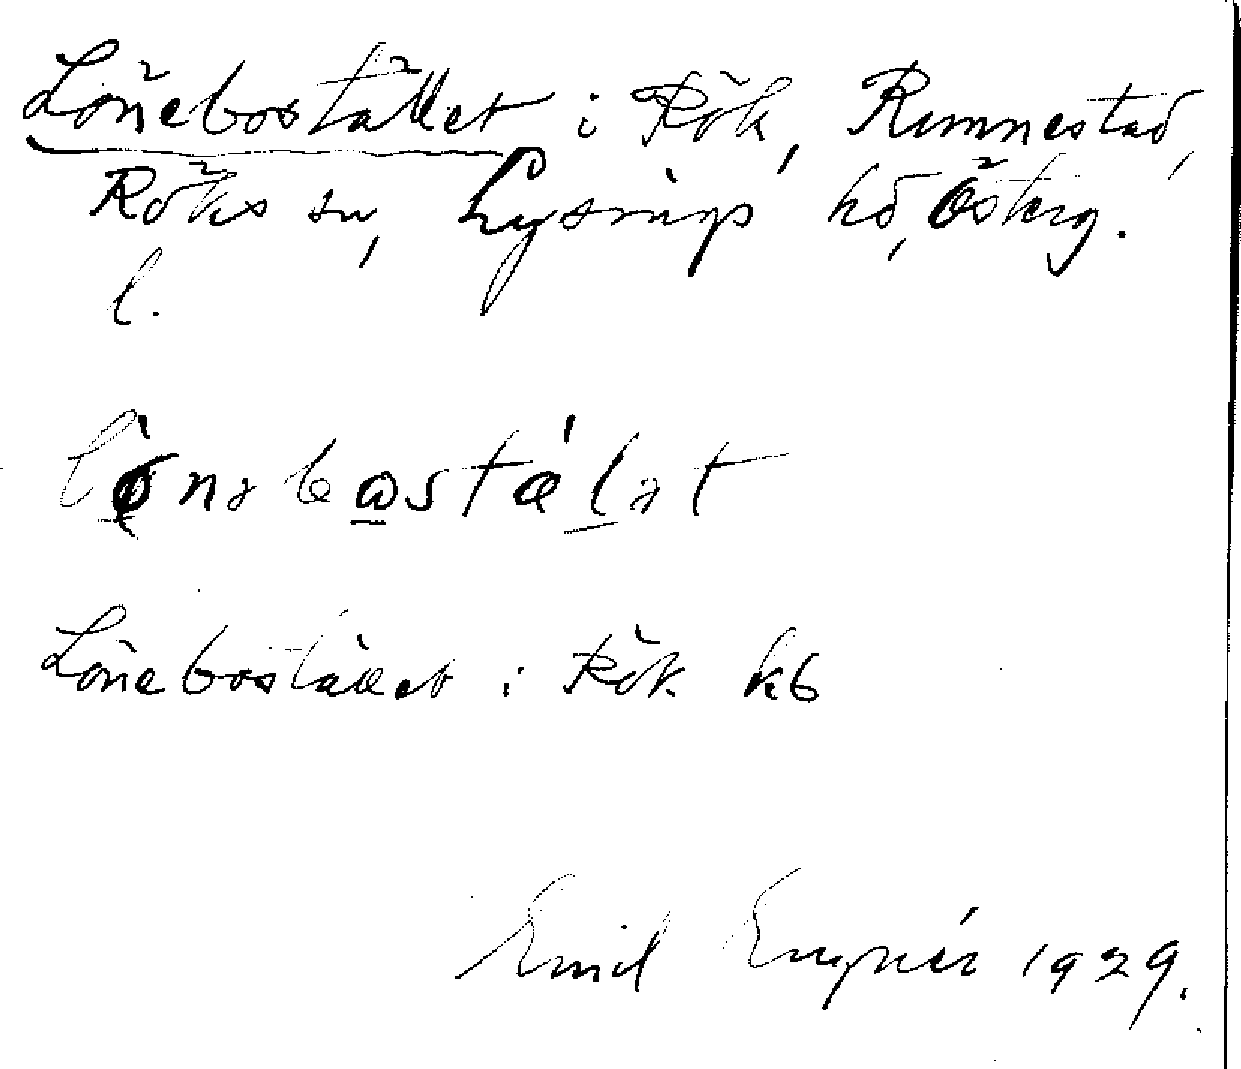 Lönebostället i Rök, Rumnestad,
Röks sn, Lysings hd, Österg.
l.
Lönebostället i Rök kb
Emil Engnér 1929.